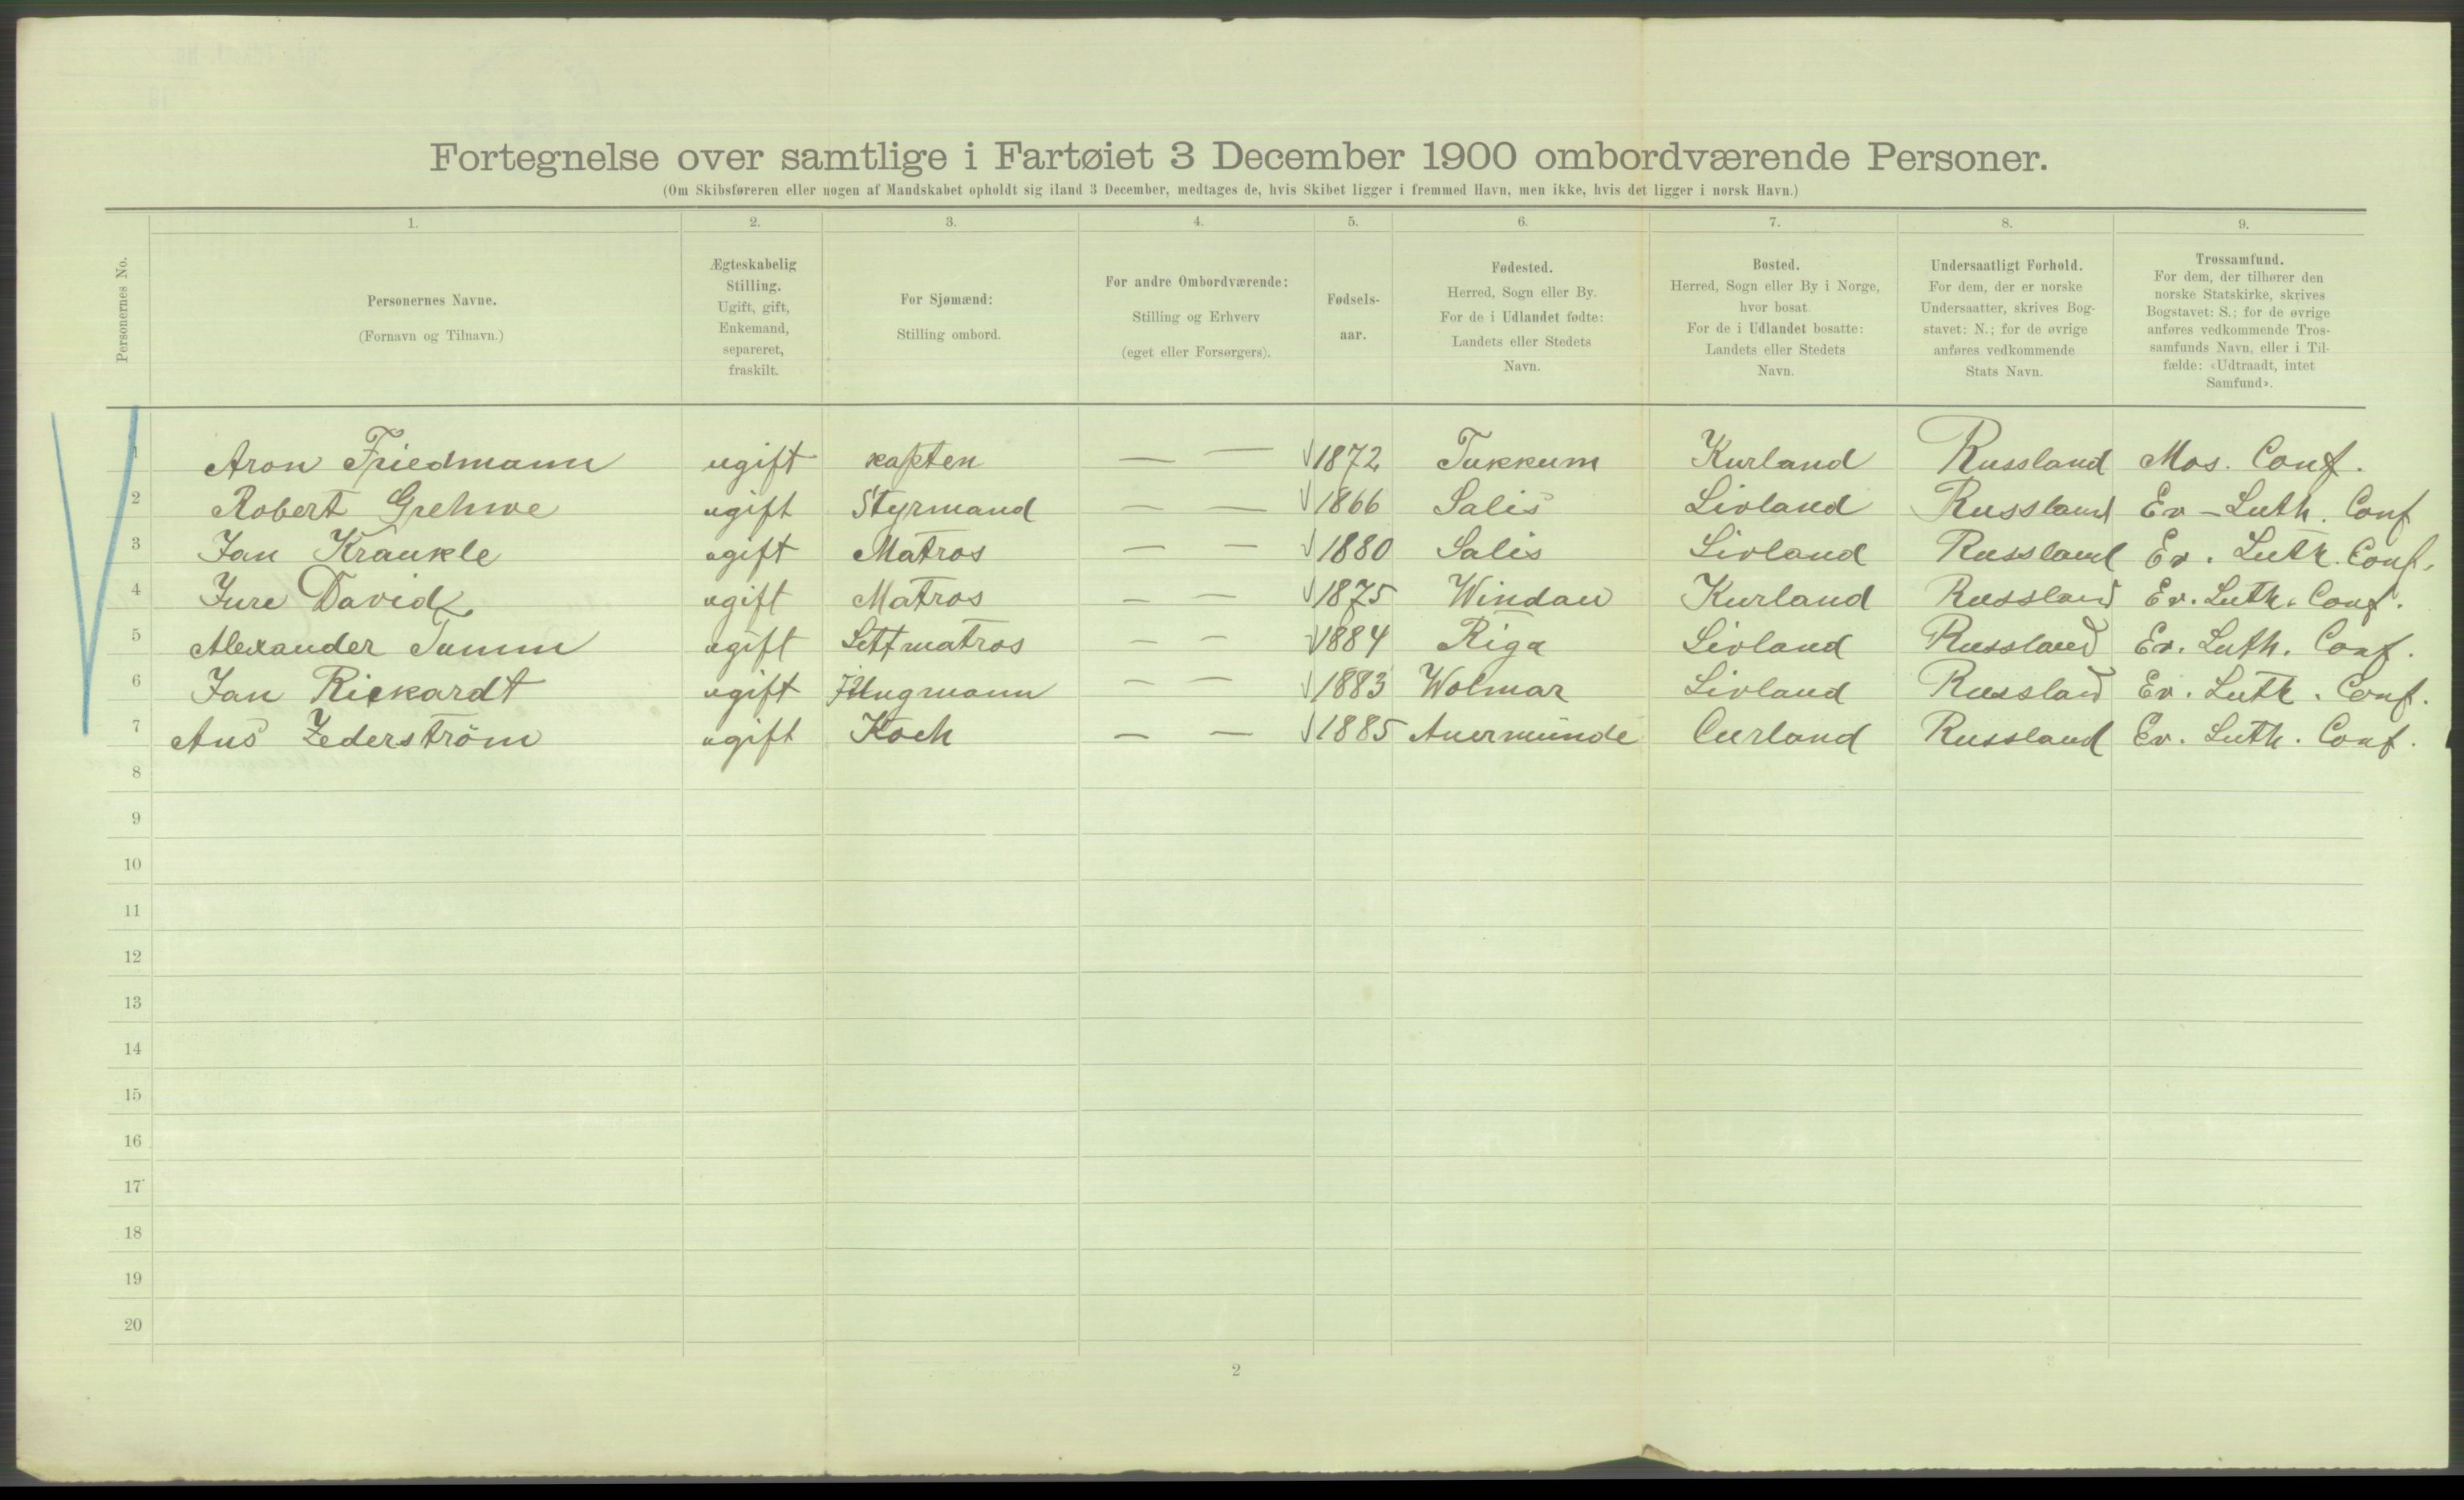 Fortegnelse over samtlige i Fartøiet 3 December 1900 ombordværende Personer.
(Om Skibsføreren eller nogen af Mandskabet opholdt sig iland 3 December, medtages de, hvis Skibet ligger i fremmed Havn, men ikke, hvis det ligger i norsk Havn.)
Personernes No.
1. 2. 3. 4. 5. 6. 7. 8. 9.
Personernes Navne.
(Fornavn og Tilnavn.)
Ægteskabelig
Stilling.
Ugift, gift,
Enkemand,
separeret,
fraskilt.
For Sjømænd:
Stilling ombord.
For andre Ombordværende:
Stilling og Erhverv
(eget eller Forsørgers).
Fødsels-
aar.
Fødested.
Herred, Sogn eller By.
For de i Udlandet fødte:
Landets eller Stedets
Navn.
Bosted.
Herred, Sogn eller By i Norge,
hvor bosat.
For de i Udlandet bosatte:
Landets eller Stedets
Navn.
Undersaatligt Forhold.
For dem, der er norske
Undersaatter, skrives Bog-
stavet: N.; for de øvrige
anføres vedkommende
Stats Navn.
Trossamfund.
For dem, der tilhører den
norske Statskirke, skrives
Bogstavet: S.; for de øvrige
anføres vedkommende Tros-
samfunds Navn, eller i Til-
fælde: «Udtraadt, intet
Samfund».
1 Aron Friedmann ugift kapten — — 1872 Tukkum Kurland Russland Mos. Conf.
2 Robert Grehwe ugift Styrmand — — 1866 Salis Livland Russland Ev-Luth. Conf
3 Jan Kraukle ugift Matros — — 1880 Salis Livland Russland Ev. Luth. Conf.
4 Jure Davidz ugift Matros — — 1875 Windau Kurland Russland Ev. Luth. Conf.
5 Alexander Tamm ugift Lettmatros — — 1884 Riga Livland Russland Ev. Luth. Conf.
6 Jan Rickardt ugift Jungmann — — 1883 Wolmar Livland Russland Ev. Luth. Conf.
7 Ans Zederström ugift Koch — — 1885 Auermünde Curland Russland Ev. Luth. Conf.
8
9
10
11
12
13
14
15
16
17
18
19
20
2